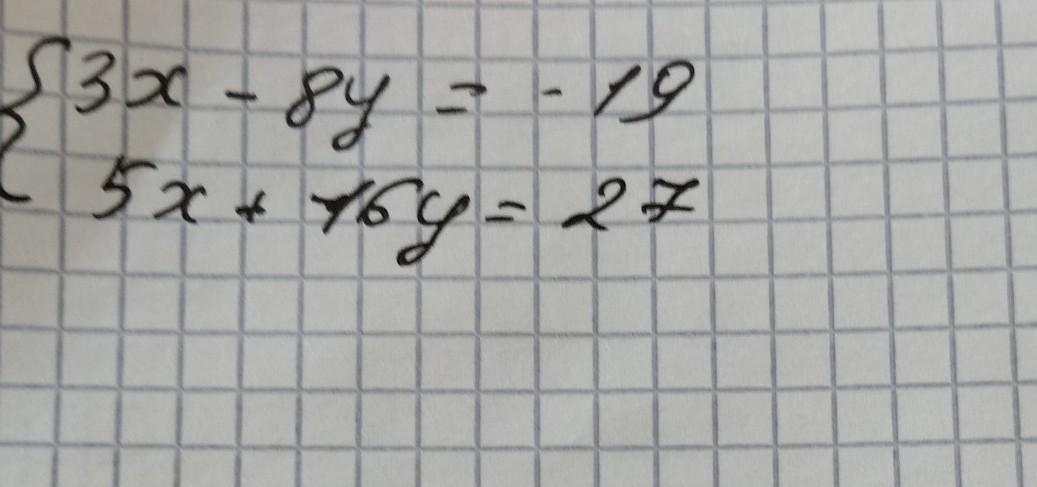 {3x - 8y = -19
5x + 16y = 27